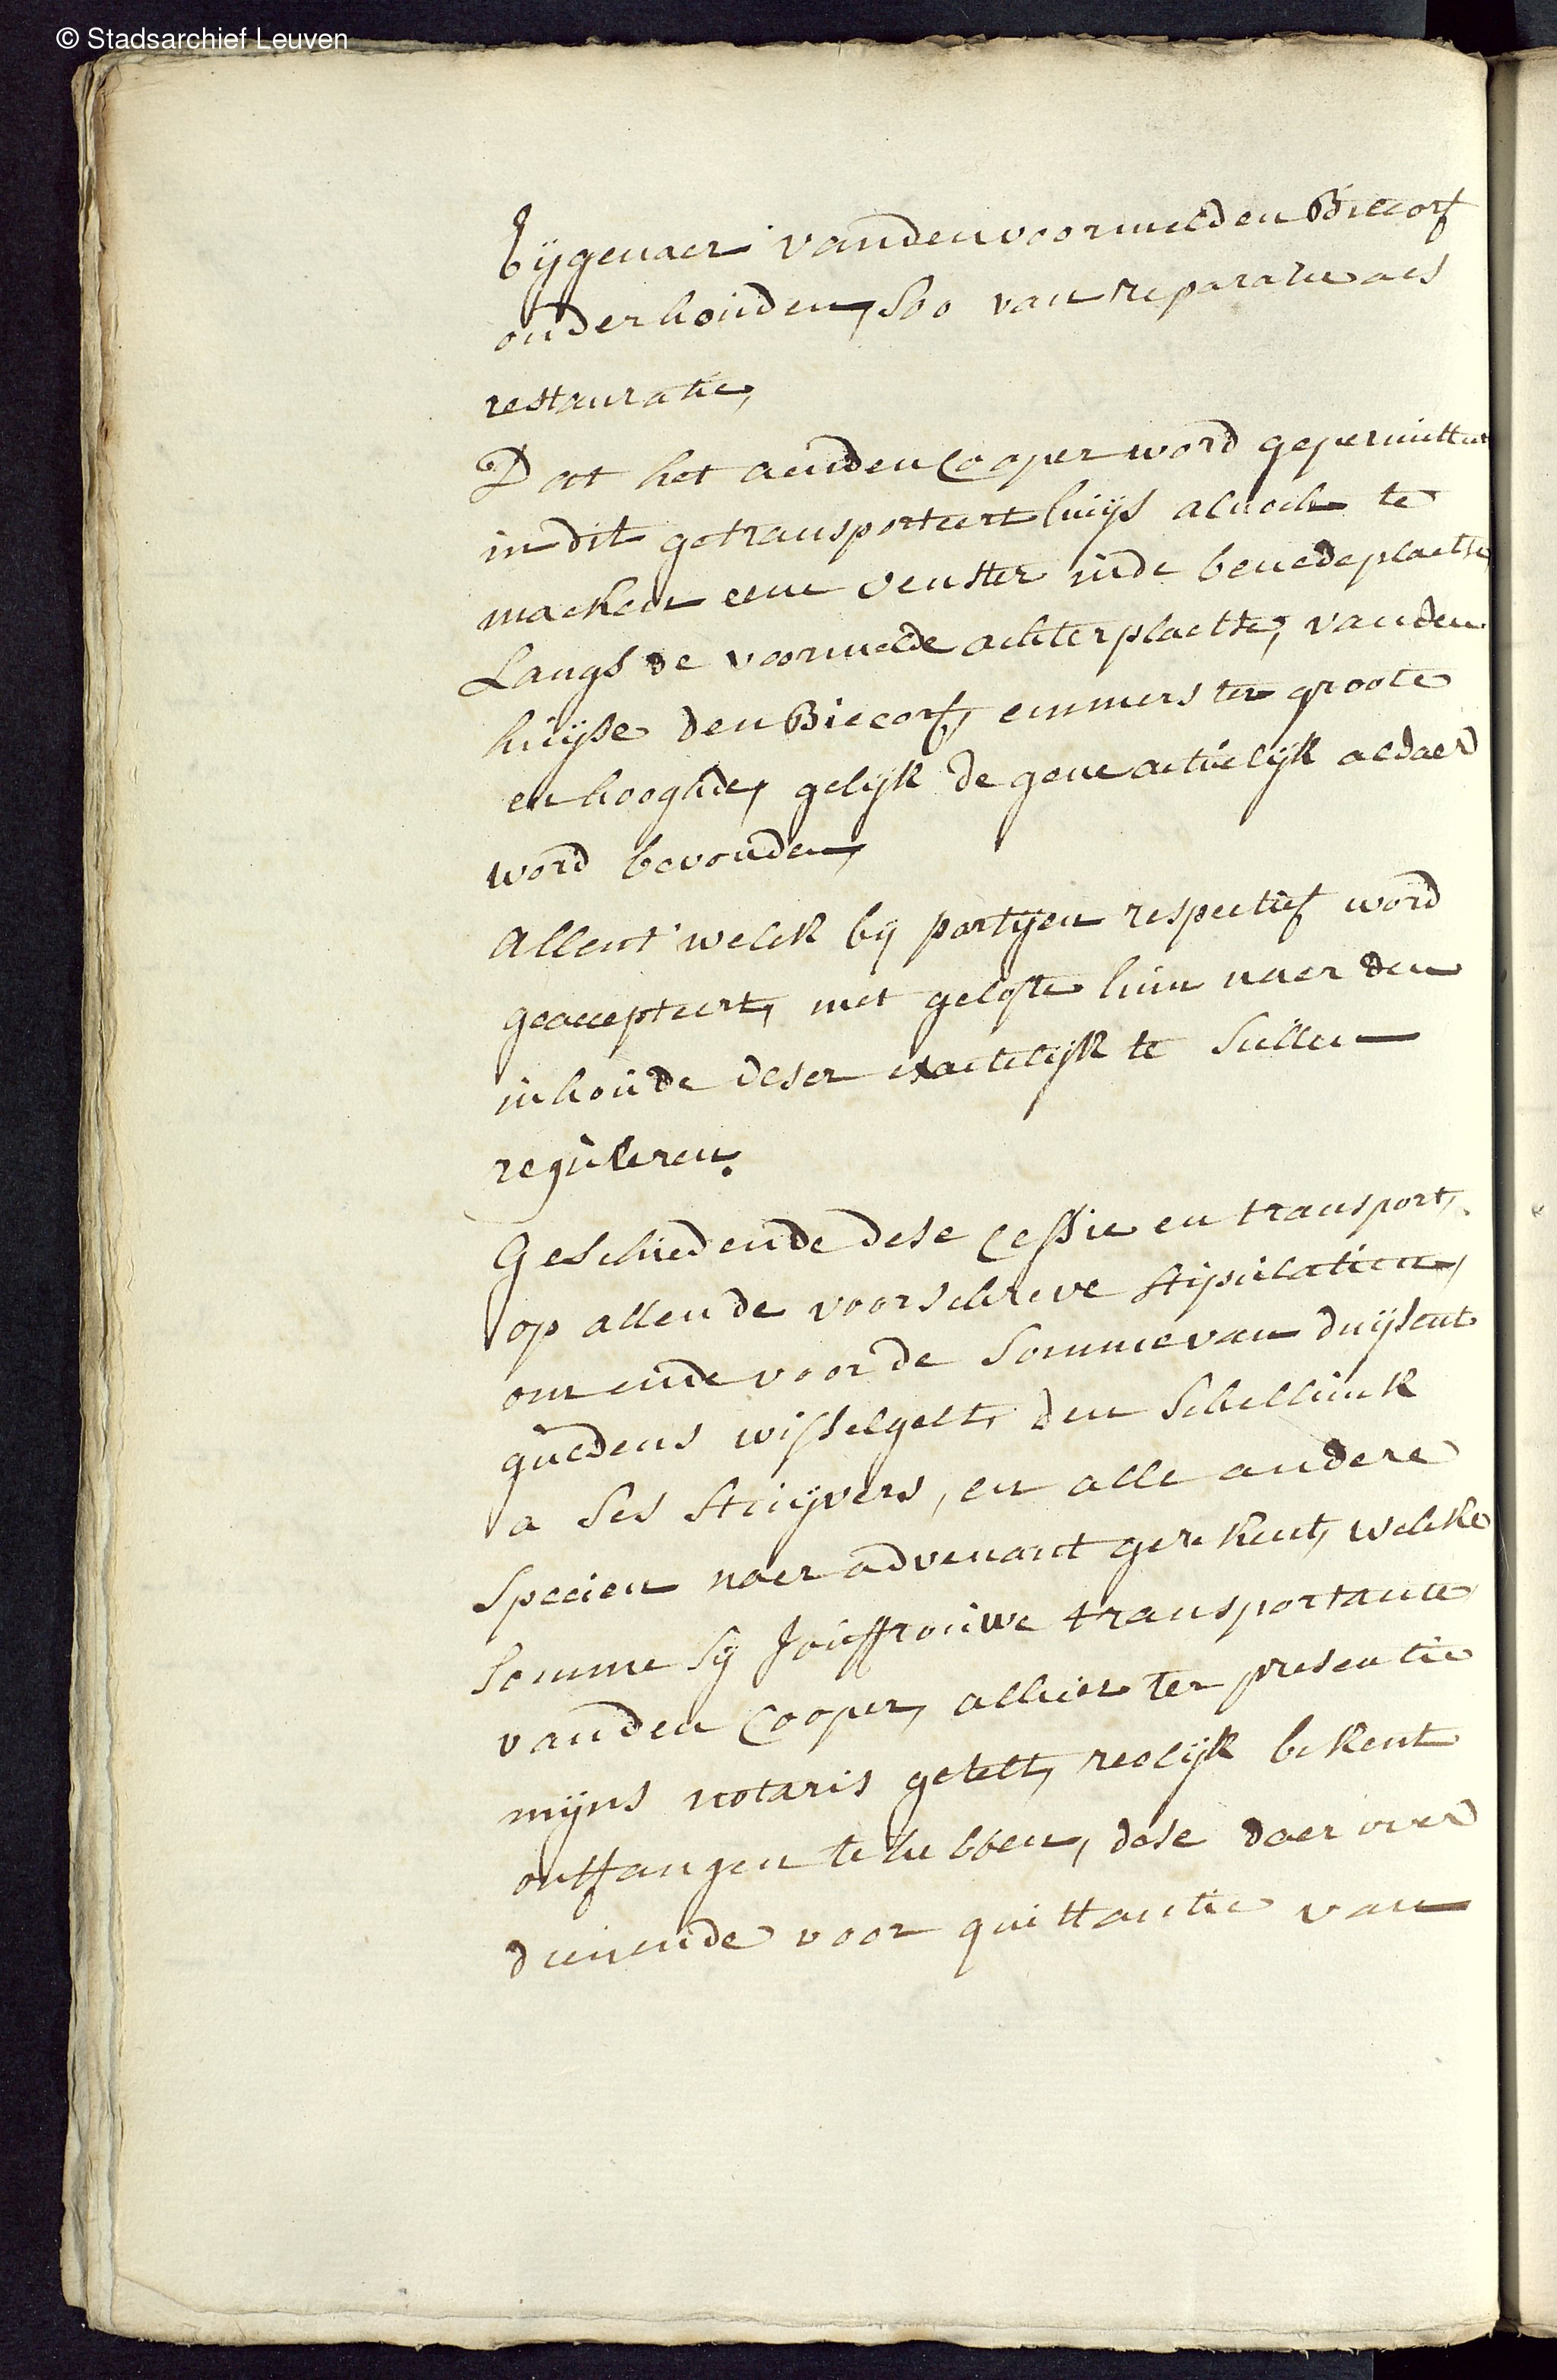 © Stadsarchief Leuven
Eijgenaer vanden voormelden Biecorf
onderhouden, soo van reparatie als
restauratie,
Dat het aenden Cooper word gepermitteert
in dit getransporteert huijs alnoch te
maeken eene venster inde benedeplaetse,
Langs de voormelde achterplaetse, vanden
huijse den Biecorf, emmers ter groote
en hooghde, gelijk de gene actuelijk aldaer
word bevonden,
Allent' welck bij partijen respectief word
geaccepteert, met gelofte hun naer den
inhoude deser exactelijk te sullen
reguleren.
Geschiedende dese Cessie en transport,
op allen de voorschreve stipulatien,
om ende voor de somme van duijsent
guldens wisselgelt, den schellinck
a ses stuijvers, en alle andere
specien naer advenant gerekent, welcke
somme sij Jouffrouwe transportante
vanden Cooper, alhier ter presentie
mijns notaris getelt, reelijk bekent
ontfangen te hebben, dese daer over
dienende voor quittantie van